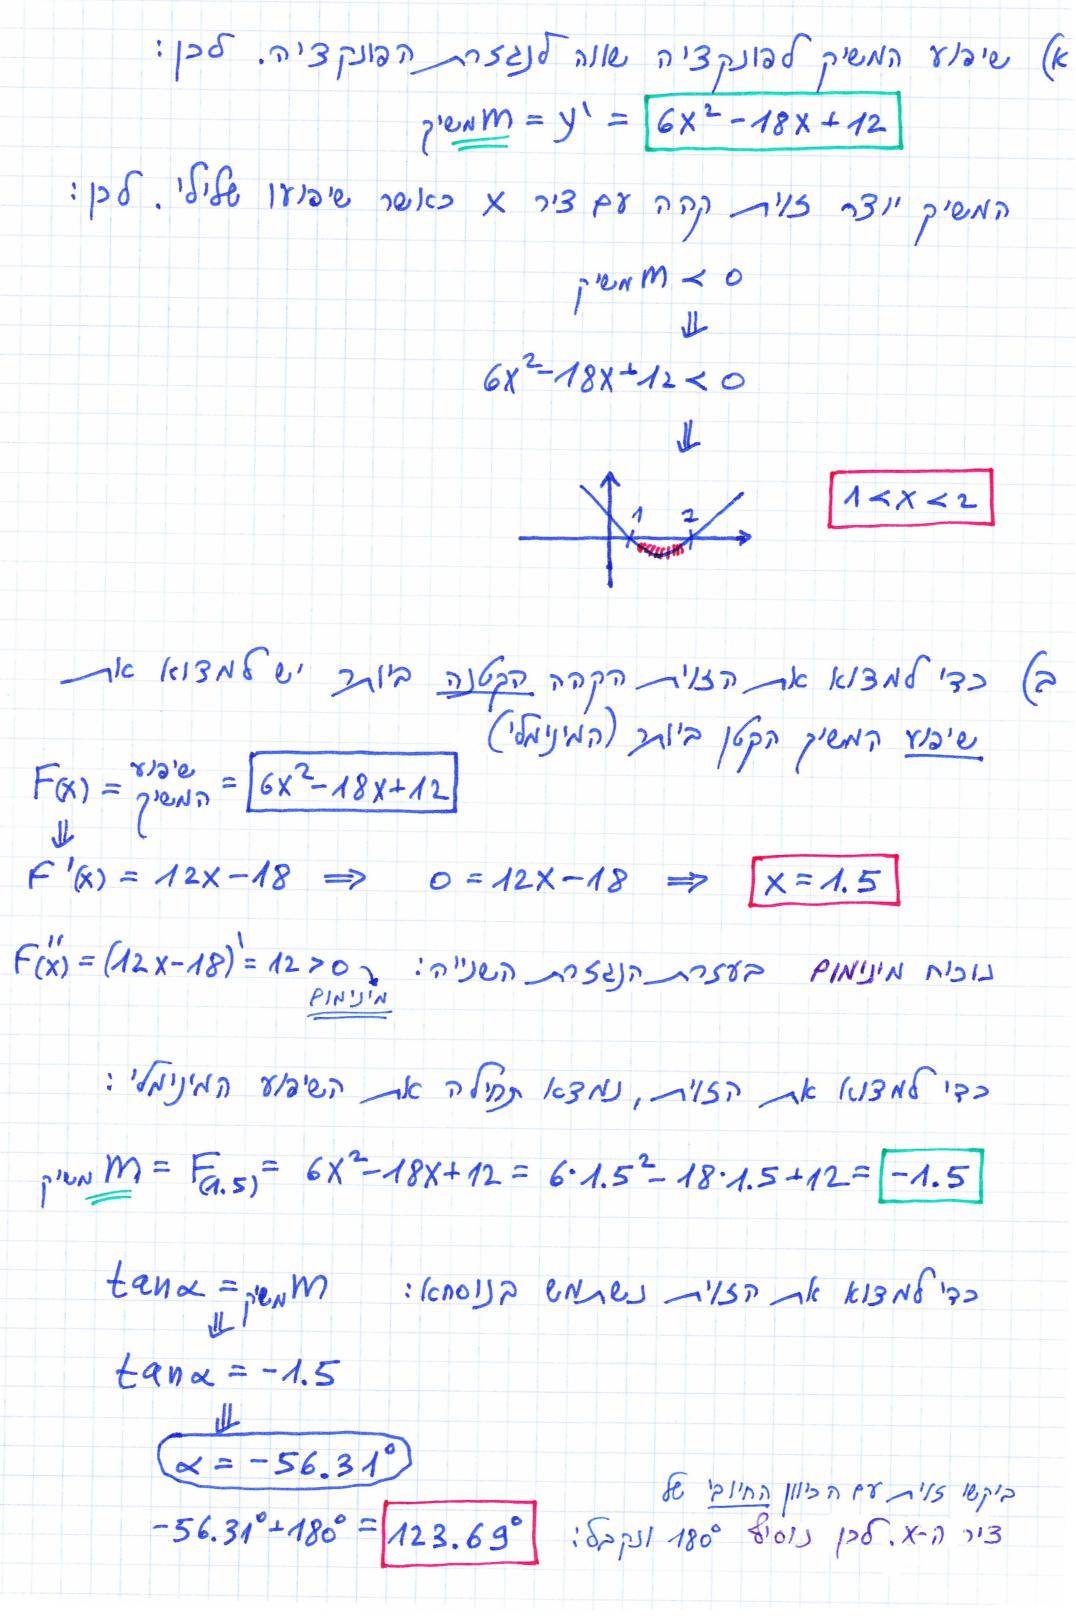 א) שיפוע המשיק לפונקציה שווה לנגזרת הפונקציה. לכן:
m משיק = y' = 6x² - 18x + 12
המשיק יוצר זוית קהה עם ציר x כאשר שיפועו שלילי. לכן:
m משיק < 0
⇓
6x² - 18x + 12 < 0
⇓
1 2
1 < x < 2
ב) כדי למצוא את הזוית הקהה הקטנה ביותר יש למצוא את
שיפוע המשיק הקטן ביותר (המינימלי)
F(x) = שיפוע המשיק = 6x² - 18x + 12
⇓
F'(x) = 12x - 18 ⇒ 0 = 12x - 18 ⇒ x = 1.5
נוכיח מינימום בעזרת הנגזרת השנייה: F''(x) = (12x - 18)' = 12 > 0
מינימום
כדי למצוא את הזוית, נמצא תחילה את השיפוע המינימלי:
m משיק = F(1.5) = 6x² - 18x + 12 = 6·1.5² - 18·1.5 + 12 = -1.5
כדי למצוא את הזוית נשתמש בנוסחא: tanα = m משיק
⇓
tanα = -1.5
⇓
α = -56.31°
ביקשו זוית עם הכיוון החיובי של
ציר ה-x. לכן נוסיף 180° ונקבל: -56.31° + 180° = 123.69°